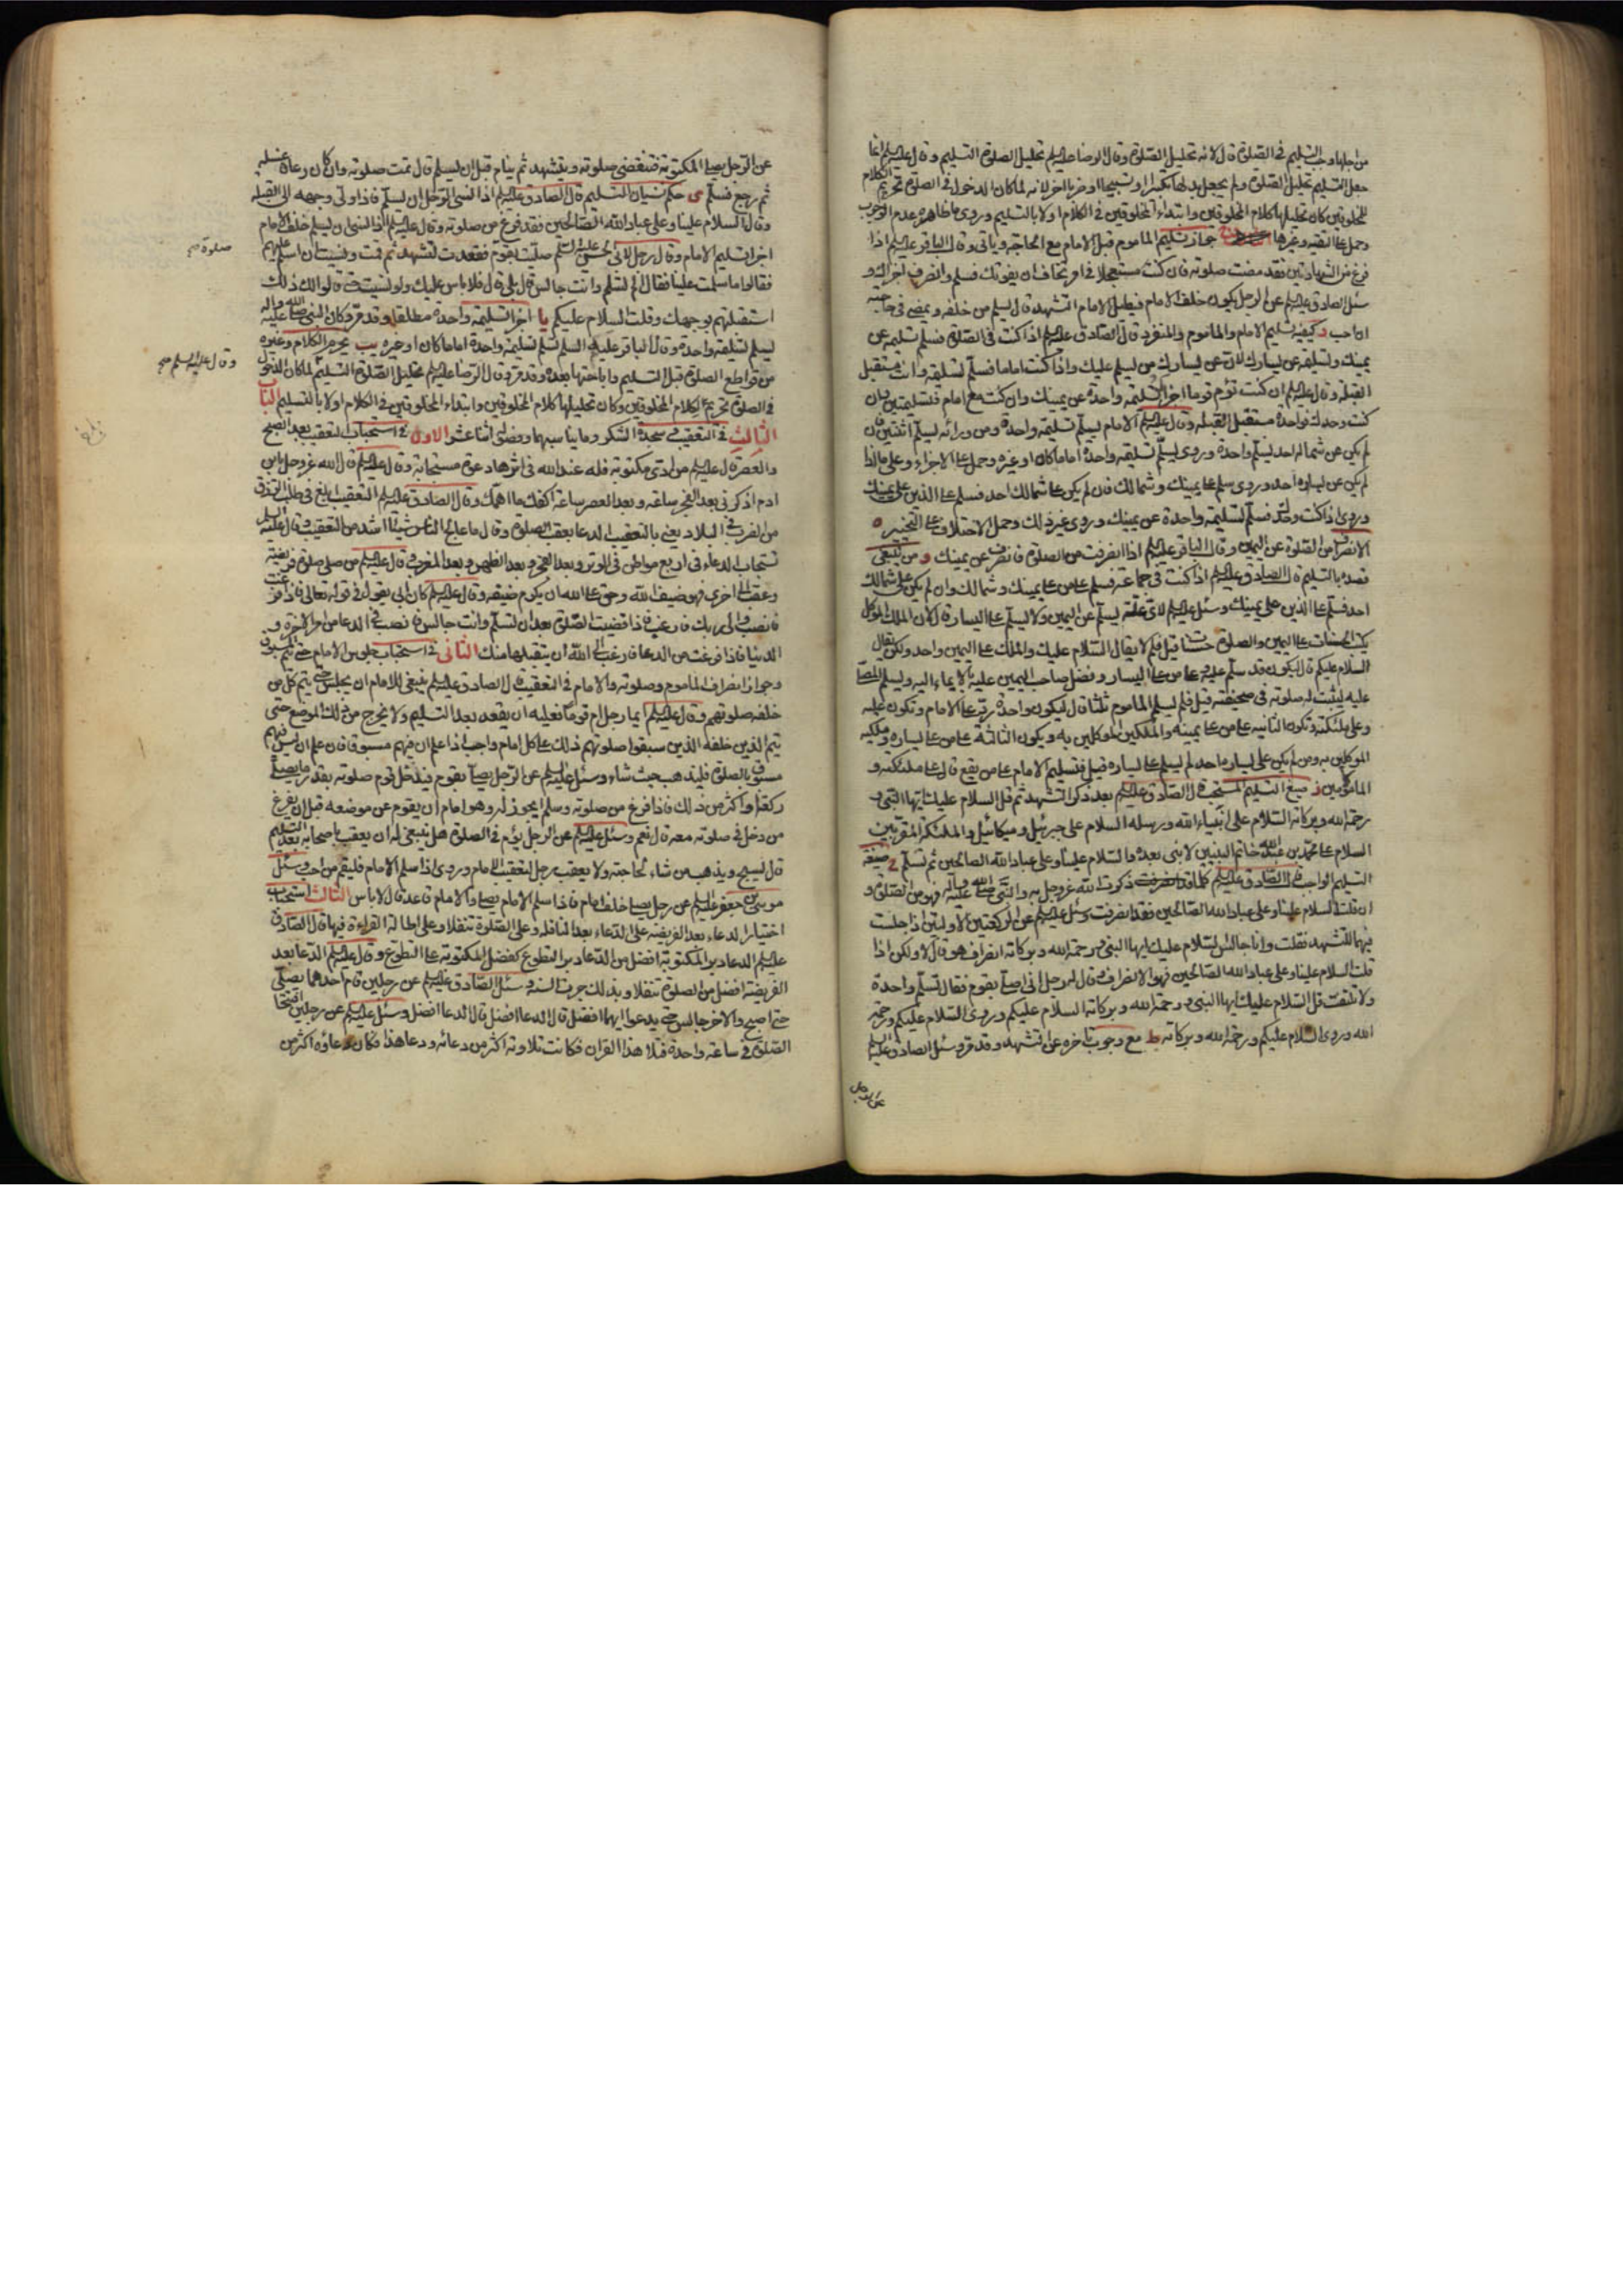 من اجلها وجب التسليم في الصلوة قال لانه تحليل الصلوة وقال الرضا عليه السلم تحليل الصلوة التسليم وقال عليه السلم انما
جعل التسليم تحليل الصلوة ولم يجعل بدلها تكبيرا او تسبيحا او ضربا اخر لانه لما كان الدخول في الصلوة تحريم الكلام
للمخلوقين كان تحليلها كلام المخلوقين وابتداء المخلوقين في الكلام اولا بالتسليم وروي ما ظاهره عدم الوجوب
وحمل على التقية وغيرها جواز تسليم الماموم قبل الامام مع الحاجة وياتي وقال الباقر عليه السلم اذا
فرغ من الشهادتين فقد مضت صلوته فان كنت مستعجلا في امر تخاف ان يفوتك فسلم وانصرف اجزاك و
سئل الصادق عليه السلم عن الرجل يكون خلف الامام فيطيل الامام التشهد قال يسلم من خلفه ويمضي في حاجته
ان احب د كيفية تسليم الامام والماموم والمنفرد قال الصادق عليه السلم اذا كنت في الصلوة فسلم تسليمة عن
يمينك وتسليمة عن يسارك لان عن يسارك من يسلم عليك واذا كنت اماما فسلم تسليمة وانت مستقبل
القبلة وقال عليه السلم ان كنت تؤم قوما اجزاك تسليمة واحدة عن يمينك وان كنت مع امام فتسليمتين وان
كنت وحدك فواحدة مستقبل القبلة وقال عليه السلم الامام يسلم تسليمة واحدة ومن ورائه يسلم اثنتين فان
لم يكن عن شماله احد يسلم واحدة وروي يسلم تسليمة واحدة اماما كان او غيره وحمل على الاجزاء وعلى ما اذا
لم يكن عن يساره احد وروي سلم على يمينك وشمالك فان لم يكن على شمالك احد فسلم على الذين على يمينك
وروي اذا كنت وحدك فسلم تسليمة واحدة عن يمينك وروي غير ذلك وحمل الاختلاف على التخيير ه
الانصراف من الصلوة عن اليمين وقال الباقر عليه السلم اذا انصرفت من الصلوة فانصرف عن يمينك و من ينبغي
قصده بالتسليم قال الصادق عليه السلم اذا كنت في جماعة فسلم على من على يمينك وشمالك وان لم يكن على شمالك
احد فسلم على الذين على يمينك وسئل عليه السلم لاي علة يسلم عن اليمين ولا يسلم على اليسار قال لان الملك الموكل
يكتب الحسنات على اليمين والصلوة حسنات قيل فلم لا يقال السلام عليك والملك على اليمين واحد ولكن يقال
السلام عليكم قال ليكون قد سلم عليه وعلى من على اليسار وفضل صاحب اليمين عليه بالايماء اليه ويسلم المصلي
عليه ليثبت له صلوته في صحيفته قيل فلم يسلم الماموم ثلثا قال ليكون واحدة ردا على الامام وتكون عليه
وعلى ملئكته وتكون الثانية على من على يمينه والملكين الموكلين به ويكون الثالثة على من على يساره وملكيه
الموكلين به ومن لم يكن على يساره احد لم يسلم على يساره قيل فتسليم الامام على من يقع قال على ملئكته و
المامومين ز صيغ التسليم المستحب قال الصادق عليه السلم بعد ذكر التشهد ثم قل السلام عليك ايها النبي و
رحمة الله وبركاته السلام على انبياء الله ورسله السلام على جبرئيل وميكائيل والملئكة المقربين
السلام على محمد بن عبد الله خاتم النبيين لا نبي بعده والسلام علينا وعلى عباد الله الصالحين ثم تسلم ح صيغة
التسليم الواجب قال الصادق عليه السلم كلما ذكرت الله عز وجل به والنبي صلى الله عليه وآله فهو من الصلوة و
ان قلت السلام علينا وعلى عباد الله الصالحين فقد انصرفت وسئل عليه السلم عن الركعتين الاولتين اذا جلست
فيهما للتشهد فقلت وانا جالس السلام عليك ايها النبي ورحمة الله وبركاته انصراف هو قال لا ولكن اذا
قلت السلام علينا وعلى عباد الله الصالحين فهو الانصراف وقال له رجل اني اصلي بقوم فقال تسلم واحدة
ولا تلتفت قل السلام عليك ايها النبي ورحمة الله وبركاته السلام عليكم وروي السلام عليكم ورحمة
الله وروي السلام عليكم ورحمة الله وبركاته ط مع وجوب تاخره عن تشهد وقد مر وسئل الصادق عليه السلم
عن الرجل
عن الرجل يصلي المكتوبة فتنقضي صلوته ويتشهد ثم ينام قبل ان يسلم قال تمت صلوته وان كان رعافا غسله
ثم رجع فسلم ى حكم نسيان التسليم قال الصادق عليه السلم اذا نسي الرجل ان يسلم فاذا ولى وجهه الى القبلة
وقال السلام علينا وعلى عباد الله الصالحين فقد فرغ من صلوته وقال عليه السلم اذا نسي ان يسلم خلف الامام
اجزاه تسليم الامام وقال رجل لابي الحسن عليه السلم صليت بقوم فقعدت لتشهد ثم قمت ونسيت ان اسلم عليهم
فقالوا ما سلمت علينا فقال الم تسلم وانت جالس قال بلى قال فلا باس عليك ولو نسيت حتى قالوا لك ذلك
استقبلتهم بوجهك وقلت السلام عليكم يا اجزاء تسليمة واحدة مطلقا وقد مر وكان النبي صلى الله عليه واله
يسلم تسليمة واحدة وقال الباقر عليه السلم تسلم تسليمة واحدة اماما كان او غيره يب تحريم الكلام وغيره
من قواطع الصلوة قبل التسليم واباحتها بعده وقد مر وقال الرضا عليه السلم تحليل الصلوة التسليم لما كان الدخول
في الصلوة تحريم الكلام المخلوقين وكان تحليلها كلام المخلوقين وابتداء المخلوقين في الكلام اولا بالتسليم الباب
الثالث في التعقيب وسجدة الشكر وما يناسبهما وفصوله اثنا عشر الاول في استحباب التعقيب بعد الصبح
والعصر قال عليه السلم من ادى مكتوبة فله عند الله في اثرها دعوة مستجابة وقال عليه السلم قال الله عز وجل يا ابن
ادم اذكرني بعد الفجر ساعة وبعد العصر ساعة اكفك ما اهمك وقال الصادق عليه السلم التعقيب ابلغ في طلب الرزق
من الضرب في البلاد يعني بالتعقيب الدعا بعقب الصلوة وقال ما عالج الناس شيئا اشد من التعقيب وقال عليه السلم
تستجاب الدعاء في اربع مواطن في الوتر وبعد الفجر وبعد الظهر وبعد المغرب وقال عليه السلم من صلى صلوة فريضة
وعقب الى اخرى فهو ضيف الله وحق على الله ان يكرم ضيفه وقال عليه السلم كان ابي يقول في قوله تعالى فاذا فرغت
فانصب والى ربك فارغب فاذا قضيت الصلوة بعد ان تسلم وانت جالس فانصب في الدعا من امر الاخرة و
الدنيا فاذا فرغت من الدعا فارغب الى الله ان يتقبلها منك الثاني في استحباب جلوس الامام حتى يتم المسبوق
وجواز انصراف الماموم وصلوته والامام في التعقيب قال الصادق عليه السلم ينبغي للامام ان يجلس حتى يتم كل من
خلفه صلوتهم وقال عليه السلم ايما رجل ام قوما فعليه ان يقعد بعد التسليم ولا يخرج من ذلك الموضع حتى
يتم الذين خلفه الذين سبقوا صلوتهم ذلك على كل امام واجب اذا علم ان فيهم مسبوقا فان علم ان ليس فيهم
مسبوق بالصلوة فليذهب حيث شاء وسئل عليه السلم عن الرجل يصلي بقوم فيدخل قوم صلوته بقدر ما يصلي
ركعة او اكثر من ذلك فاذا فرغ من صلوته وسلم ايجوز له وهو امام ان يقوم عن موضعه قبل ان يفرغ
من دخل في صلوته معه قال نعم وسئل عليه السلم عن الرجل يؤم في الصلوة هل ينبغي له ان يعقب باصحابه بعد التسليم
قال يسبح ويذهب من شاء لحاجته ولا يعقب رجل لتعقيب الامام وروي اذا سلم الامام فليقم من احب وسئل
موسى بن جعفر عليه السلم عن رجل يصلي خلف امام فاذا سلم الامام يصلي والامام قاعد قال لا باس الثالث استحباب
اختيار الدعاء بعد الفريضة على الدعاء بعد النافلة وعلى الصلوة تنفلا وعلى اطالة القراءة فيها قال الصادق
عليه السلم الدعا دبر المكتوبة افضل من الدعا دبر التطوع كفضل المكتوبة على التطوع وقال عليه السلم الدعا بعد
الفريضة افضل من الصلوة تنفلا وبذلك جرت السنة وسئل الصادق عليه السلم عن رجلين قام احدهما يصلي
حتى اصبح والاخر جالس حتى يدعو ايهما افضل قال الدعا افضل قال الدعا افضل وسئل عليه السلم عن رجلين افتتحا
الصلوة في ساعة واحدة فتلا هذا القران فكانت تلاوته اكثر من دعائه ودعا هذا فكان دعاؤه اكثر من
صلوة صح
وقال عليه السلم صح